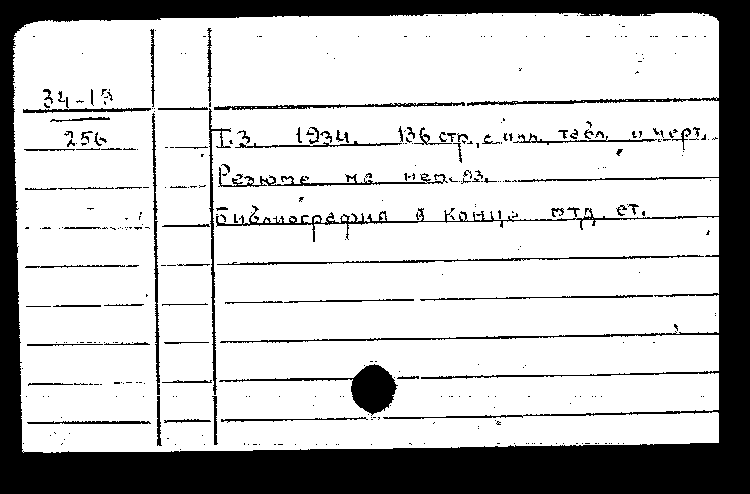 34-15
256
Т.3. 1934. 136 стр. с илл. табл. и черт.
Резюме на нем. яз.
Библиография в конце отд. ст.